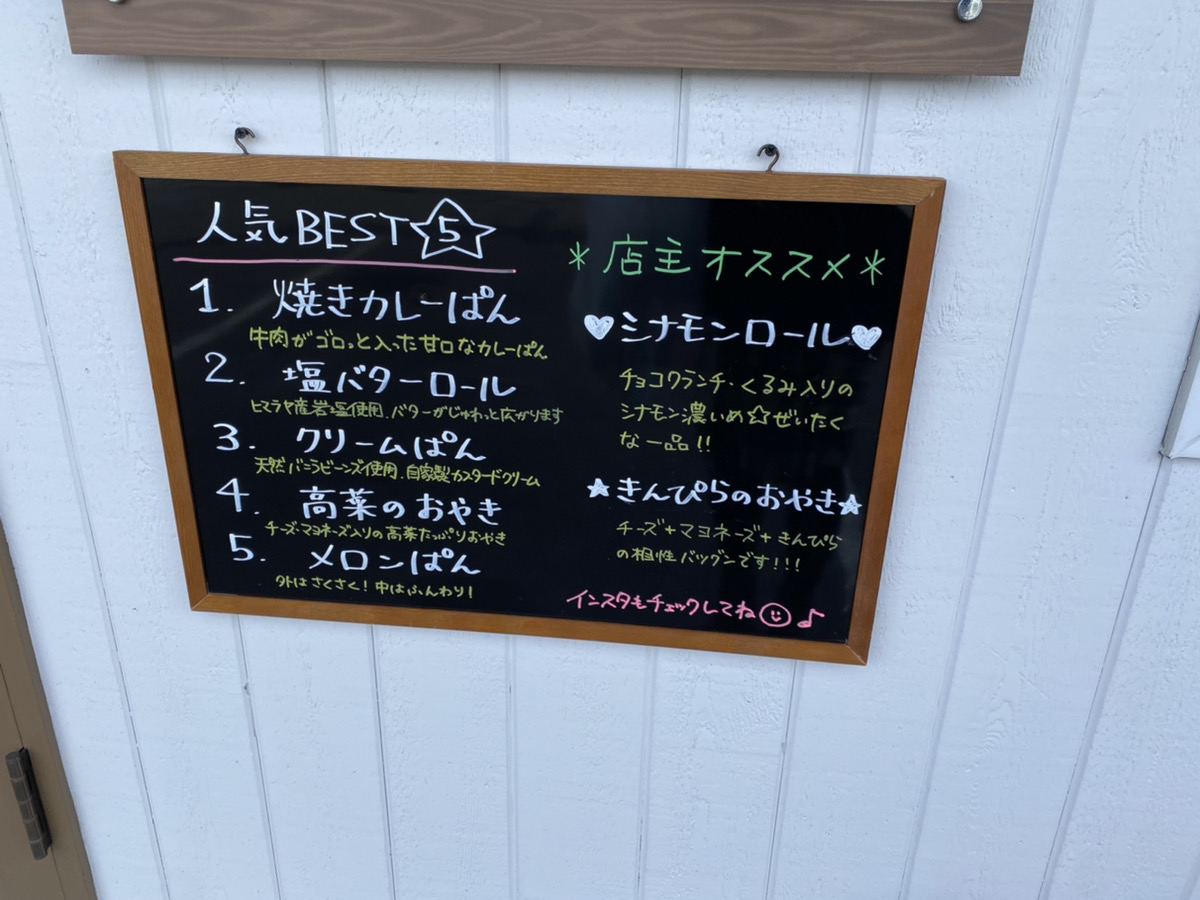 人気BEST5
1. 焼きカレーぱん
牛肉がゴロっと入った甘口なカレーぱん
2. 塩バターロール
ヒマラヤ産岩塩使用.バターがじゅわっと広がります
3. クリームぱん
天然バニラビーンズ使用.自家製カスタードクリーム
4. 高菜のおやき
チーズ・マヨネーズ入りの高菜たっぷりおやき
5. メロンぱん
外はさくさく!中はふんわり!
*店主オススメ*
♥シナモンロール♥
チョコクランチ・くるみ入りの
シナモン濃いめ☆ぜいたく
な一品!!
★きんぴらのおやき★
チーズ+マヨネーズ+きんぴら
の相性バツグンです!!!
インスタもチェックしてね☺♪